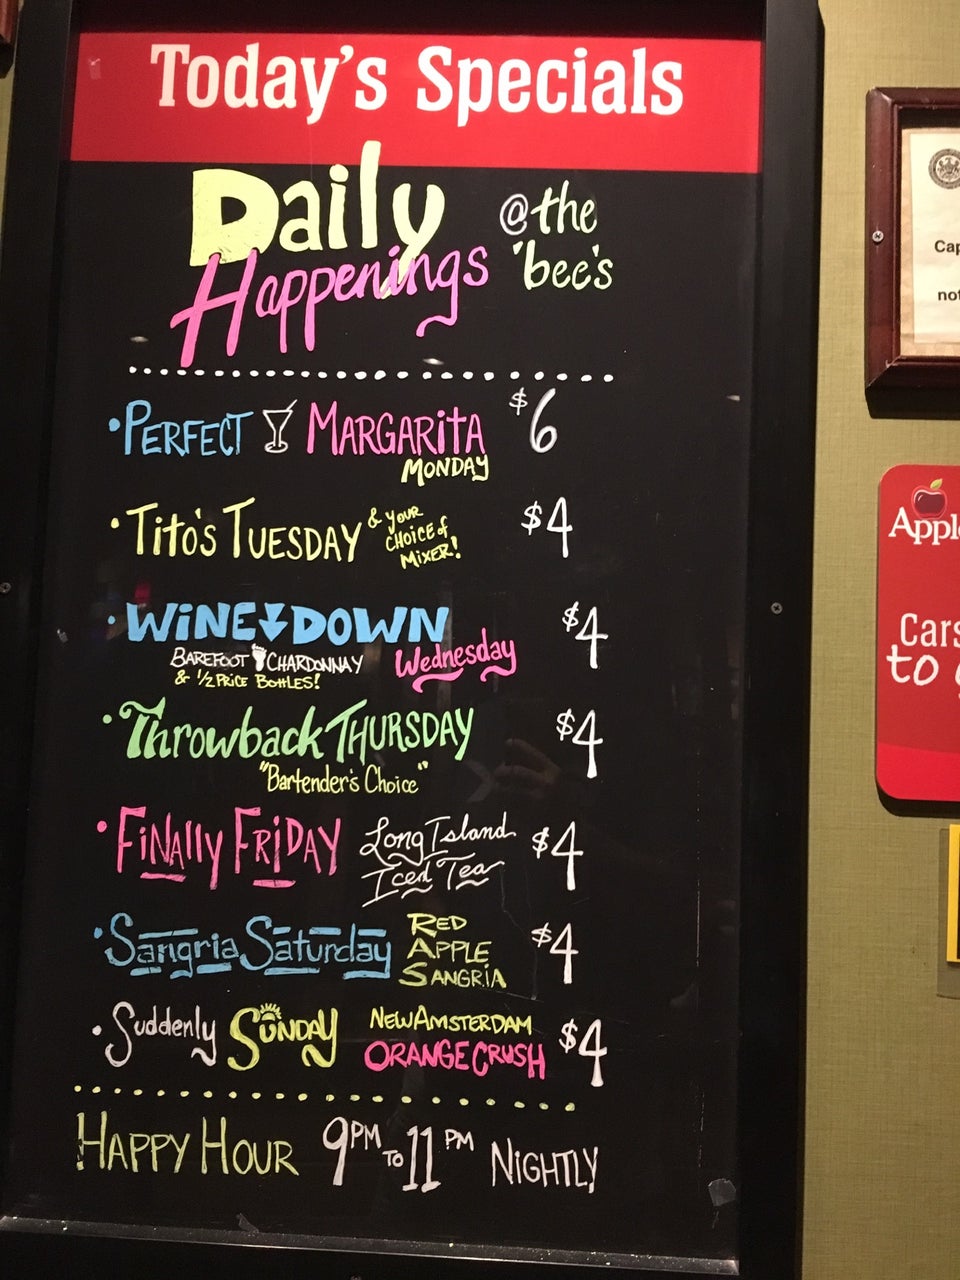 Today's Specials
Daily
Happenings
@the
'bee's
• PERFECT MARGARITA $6
MONDAY
• Tito's TUESDAY & YOUR CHOICE of MIXER! $4
• WINE DOWN $4
BAREFOOT CHARDONNAY Wednesday
& 1/2 PRICE BOTTLES!
• Throwback THURSDAY $4
"Bartender's Choice"
• FINAlly FRIDAY Long Island Iced Tea $4
• Sangria Saturday RED APPLE SANGRIA $4
• Suddenly SUNDAY NEW AMSTERDAM ORANGE CRUSH $4
HAPPY HOUR 9PM TO 11PM NIGHTLY
Cap
not
Apple
Cars
to